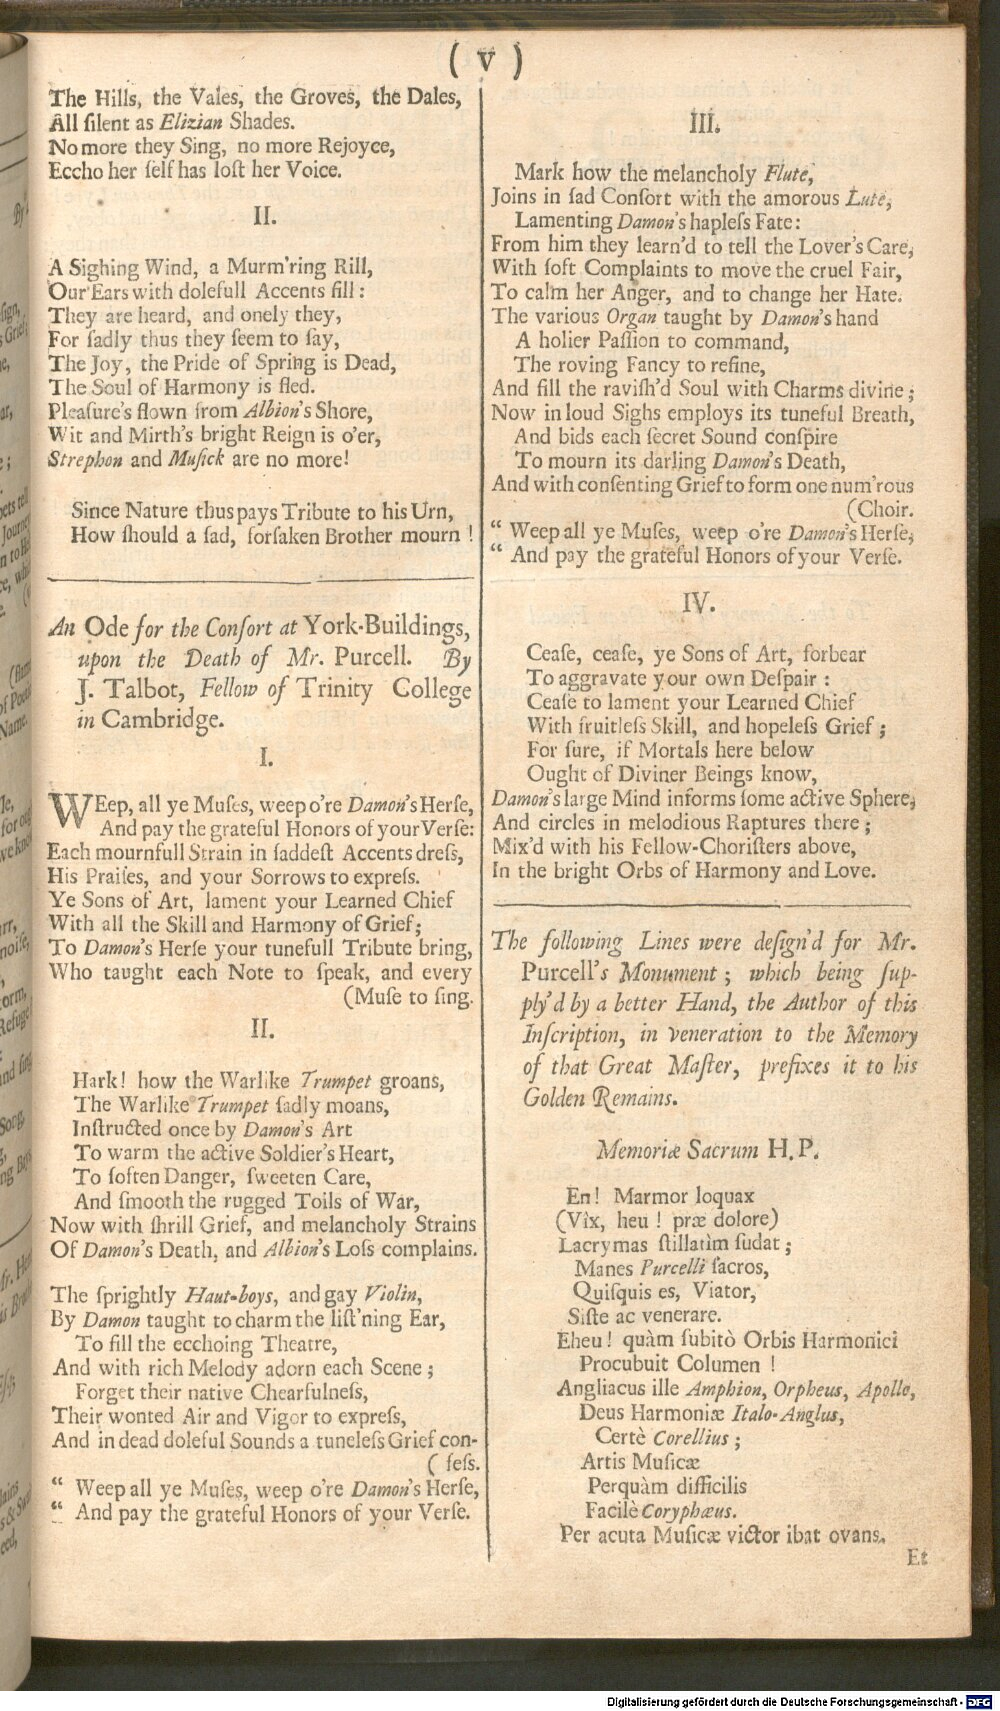 ( v )
The Hills, the Vales, the Groves, the Dales,
All ſilent as Elizian Shades.
No more they Sing, no more Rejoyce,
Eccho her ſelf has loſt her Voice.
II.
A Sighing Wind, a Murm'ring Rill,
Our Ears with dolefull Accents fill:
They are heard, and onely they,
For ſadly thus they ſeem to ſay,
The Joy, the Pride of Spring is Dead,
The Soul of Harmony is fled.
Pleaſure's flown from Albion's Shore,
Wit and Mirth's bright Reign is o'er,
Strephon and Muſick are no more!
Since Nature thus pays Tribute to his Urn,
How ſhould a ſad, forſaken Brother mourn !
An Ode for the Conſort at York-Buildings,
upon the Death of Mr. Purcell. By
J. Talbot, Fellow of Trinity College
in Cambridge.
I.
WEep, all ye Muſes, weep o're Damon's Herſe,
And pay the grateful Honors of your Verſe:
Each mournfull Strain in ſaddeſt Accents dreſs,
His Praiſes, and your Sorrows to expreſs.
Ye Sons of Art, lament your Learned Chief
With all the Skill and Harmony of Grief;
To Damon's Herſe your tunefull Tribute bring,
Who taught each Note to ſpeak, and every
(Muſe to ſing.
II.
Hark! how the Warlike Trumpet groans,
The Warlike Trumpet ſadly moans,
Inſtructed once by Damon's Art
To warm the active Soldier's Heart,
To ſoften Danger, ſweeten Care,
And ſmooth the rugged Toils of War,
Now with ſhrill Grief, and melancholy Strains
Of Damon's Death, and Albion's Loſs complains.
The ſprightly Haut-boys, and gay Violin,
By Damon taught to charm the liſt'ning Ear,
To fill the ecchoing Theatre,
And with rich Melody adorn each Scene;
Forget their native Chearfulneſs,
Their wonted Air and Vigor to expreſs,
And in dead doleful Sounds a tuneleſs Grief con-
( feſs.
“ Weep all ye Muſes, weep o're Damon's Herſe,
“ And pay the grateful Honors of your Verſe.
III.
Mark how the melancholy Flute,
Joins in ſad Conſort with the amorous Lute,
Lamenting Damon's hapleſs Fate:
From him they learn'd to tell the Lover's Care,
With ſoft Complaints to move the cruel Fair,
To calm her Anger, and to change her Hate.
The various Organ taught by Damon's hand
A holier Paſſion to command,
The roving Fancy to refine,
And fill the raviſh'd Soul with Charms divine;
Now in loud Sighs employs its tuneful Breath,
And bids each ſecret Sound conſpire
To mourn its darling Damon's Death,
And with conſenting Grief to form one num'rous
(Choir.
“ Weep all ye Muſes, weep o're Damon's Herſe,
“ And pay the grateful Honors of your Verſe.
IV.
Ceaſe, ceaſe, ye Sons of Art, forbear
To aggravate your own Deſpair :
Ceaſe to lament your Learned Chief
With fruitleſs Skill, and hopeleſs Grief ;
For ſure, if Mortals here below
Ought of Diviner Beings know,
Damon's large Mind informs ſome active Sphere,
And circles in melodious Raptures there ;
Mix'd with his Fellow-Choriſters above,
In the bright Orbs of Harmony and Love.
The following Lines were deſign'd for Mr.
Purcell's Monument ; which being ſup-
ply'd by a better Hand, the Author of this
Inſcription, in veneration to the Memory
of that Great Maſter, prefixes it to his
Golden Remains.
Memoriæ Sacrum H. P.
En! Marmor loquax
(Vix, heu ! præ dolore)
Lacrymas ſtillatim ſudat ;
Manes Purcelli ſacros,
Quiſquis es, Viator,
Siſte ac venerare.
Eheu! quàm ſubitò Orbis Harmonici
Procubuit Columen !
Angliacus ille Amphion, Orpheus, Apollo,
Deus Harmoniæ Italo-Anglus,
Certè Corellius ;
Artis Muſicæ
Perquàm difficilis
Facilè Coryphæus.
Per acuta Muſicæ victor ibat ovans.
Et
Digitalisierung gefördert durch die Deutsche Forschungsgemeinschaft - DFG